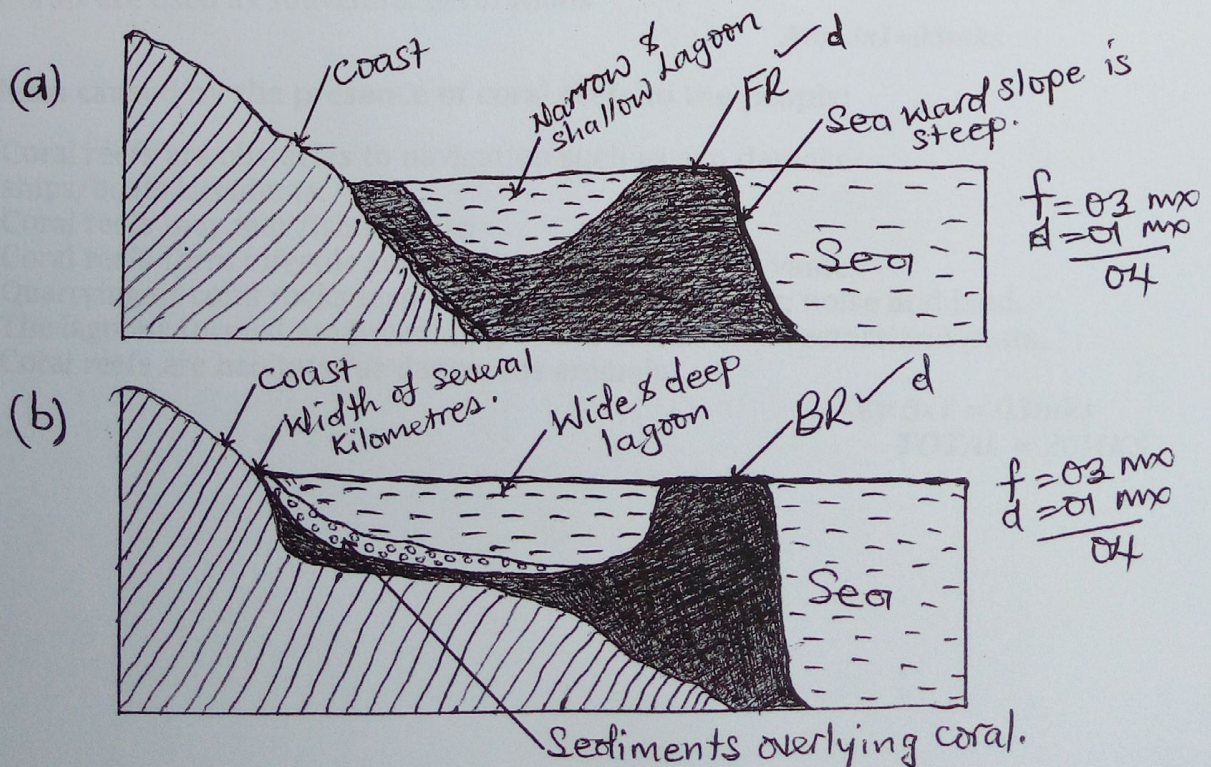 (a)
Coast
Narrow & Lagoon
shallow
FR ✓ d
Sea ward slope is
steep.
Sea
f = 03 mx
d = 01 mx
04
(b)
Coast
Width of several
Kilometres.
Wide & deep
lagoon
BR ✓ d
Sea
f = 03 mx
d = 01 mx
04
Sediments overlying coral.